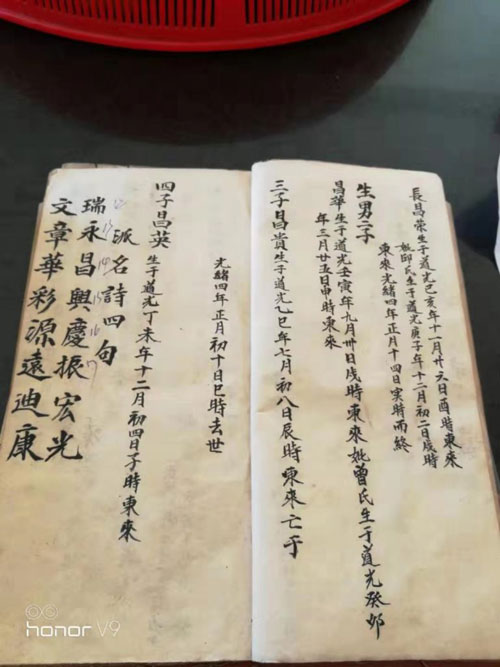 長昌榮生于道光己亥年十一月廿六日酉時東來
妣邱氏生于道光庚子年十二月初二日戌時
東來光緒四年正月十四日寅時而終
生男二子
昌華生于道光壬寅年九月卅日戌時東來妣曾氏生于道光癸卯
年三月廿五日申時東來
三子昌貴生于道光乙巳年七月初八日辰時東來亡于
光緒四年正月初十日巳時去世
四子昌英生于道光丁未年十二月初四日子時東來
派名詩四句
瑞永昌興慶振宏光
文章華彩源遠迪康
honor V9